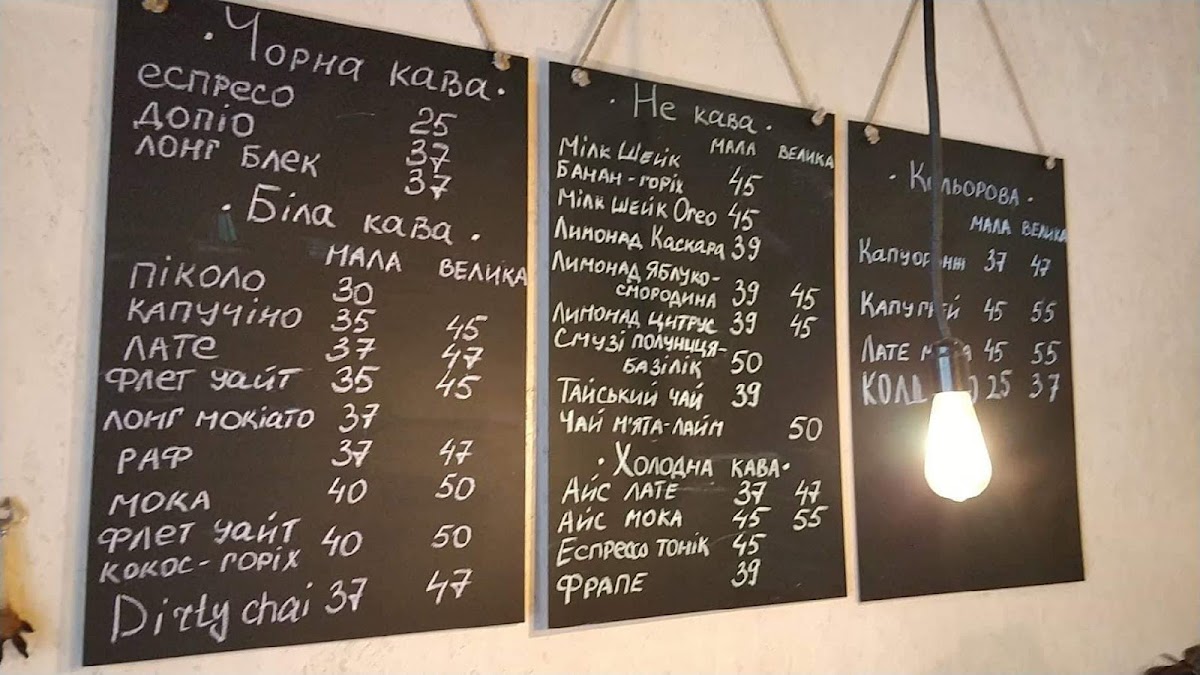 · Чорна кава ·
еспресо 25
допіо 37
лонг блек 37
· Біла кава ·
мала велика
піколо 30
капучіно 35 45
лате 37 47
флет уайт 35 45
лонг мокіато 37
раф 37 47
мока 40 50
флет уайт
кокос-горіх 40 50
Dirty chai 37 47
· Не кава ·
мала велика
Мілк Шейк
банан-горіх 45
Мілк шейк Oreo 45
Лимонад Каскара 39
Лимонад яблуко-
смородина 39 45
Лимонад цитрус 39 45
Смузі полуниця-
базілік 50
Тайський чай 39
Чай м'ята-лайм 50
· Холодна кава ·
Айс лате 37 47
Айс мока 45 55
Еспрессо тонік 45
Фрапе 39
· Кольорова ·
мала велика
37 47
45 55
Лате 45 55
25 37